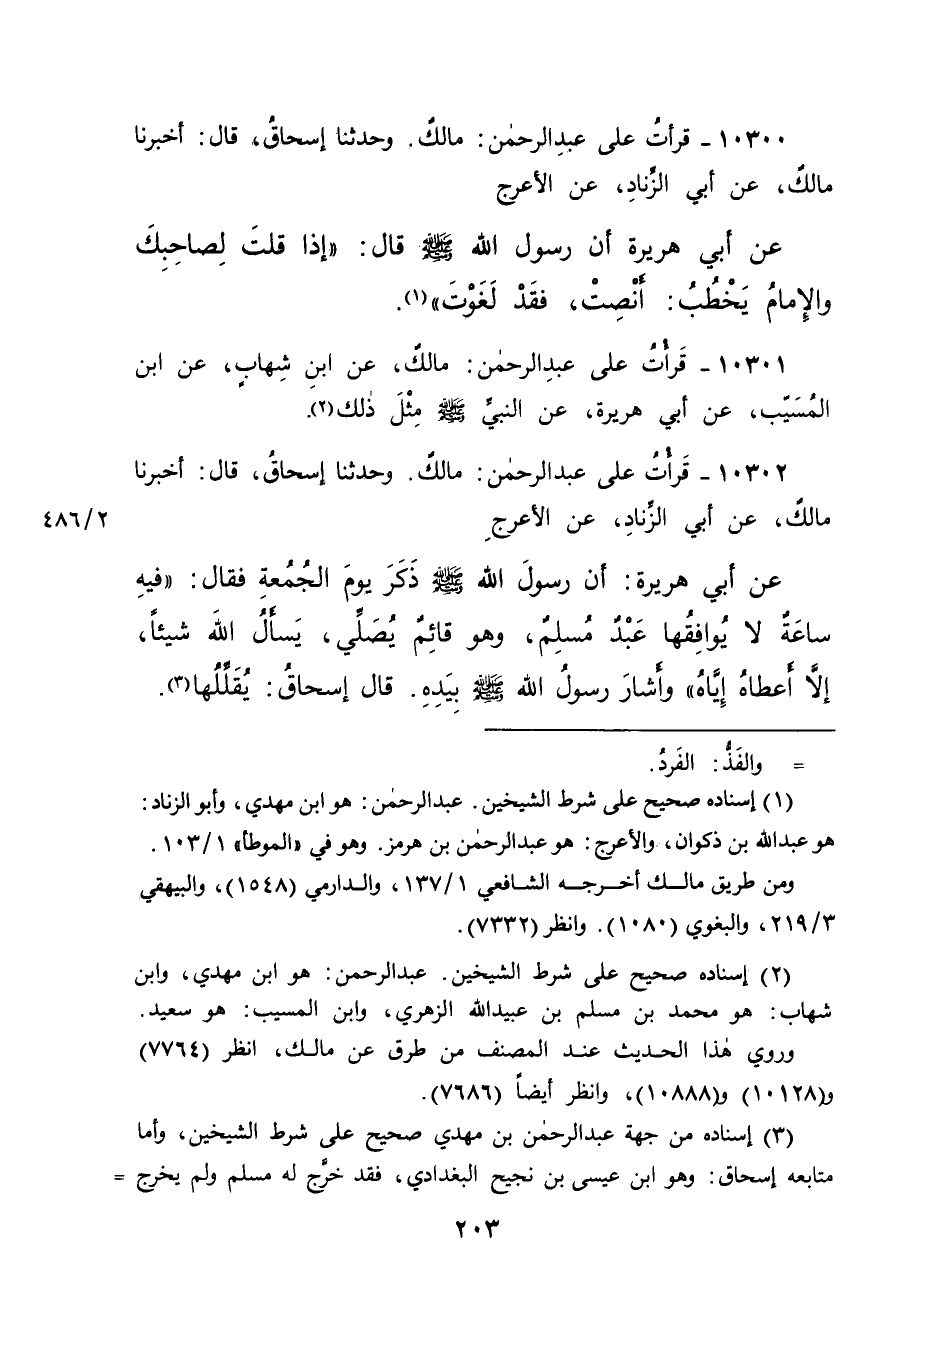 ١٠٣٠٠ ـ قرأتُ على عبدِالرحمٰن: مالكٌ. وحدثنا إسحاقُ، قال: أخبرنا
مالكٌ، عن أبي الزِّنادِ، عن الأعرج
عن أبي هريرة أن رسول الله ﷺ قال: «إذا قلتَ لِصاحِبِكَ
والإِمامُ يَخْطُبُ: أَنْصِتْ، فقَدْ لَغَوْتَ»(١).
١٠٣٠١ ـ قَرأْتُ على عبدِالرحمٰن: مالكٌ، عن ابنِ شِهابٍ، عن ابن
المُسَيّب، عن أبي هريرة، عن النبيِّ ﷺ مِثْلَ ذٰلك(٢).
١٠٣٠٢ ـ قَرأْتُ على عبدالرحمٰن: مالكٌ. وحدثنا إسحاقُ، قال: أخبرنا
مالكٌ، عن أبي الزِّنادِ، عن الأعرجِ
٤٨٦/٢
عن أبي هريرة: أن رسولَ الله ﷺ ذَكَرَ يومَ الجُمُعةِ فقال: «فيهِ
ساعَةٌ لا يُوافِقُها عَبْدٌ مُسلِمٌ، وهو قائِمٌ يُصَلِّي، يَسأَلُ اللهَ شيئاً،
إلَّا أَعطاهُ إيَّاهُ» وأَشارَ رسولُ الله ﷺ بِيَدِهِ. قال إسحاقُ: يُقَلِّلُها(٣).
= والفَذُّ: الفَردُ.
(١) إسناده صحيح على شرط الشيخين. عبدالرحمٰن: هو ابن مهدي، وأبو الزناد:
هو عبدالله بن ذكوان، والأعرج: هو عبدالرحمٰن بن هرمز. وهو في «الموطأ» ١٠٣/١.
ومن طريق مالك أخرجه الشافعي ١٣٧/١، والدارمي (١٥٤٨)، والبيهقي
٢١٩/٣، والبغوي (١٠٨٠). وانظر (٧٣٣٢).
(٢) إسناده صحيح على شرط الشيخين. عبدالرحمن: هو ابن مهدي، وابن
شهاب: هو محمد بن مسلم بن عبيدالله الزهري، وابن المسيب: هو سعيد.
وروي هٰذا الحديث عند المصنف من طرق عن مالك، انظر (٧٧٦٤)
و(١٠١٢٨) و(١٠٨٨٨)، وانظر أيضاً (٧٦٨٦).
(٣) إسناده من جهة عبدالرحمٰن بن مهدي صحيح على شرط الشيخين، وأما
متابعه إسحاق: وهو ابن عيسى بن نجيح البغدادي، فقد خرَّج له مسلم ولم يخرج =
٢٠٣